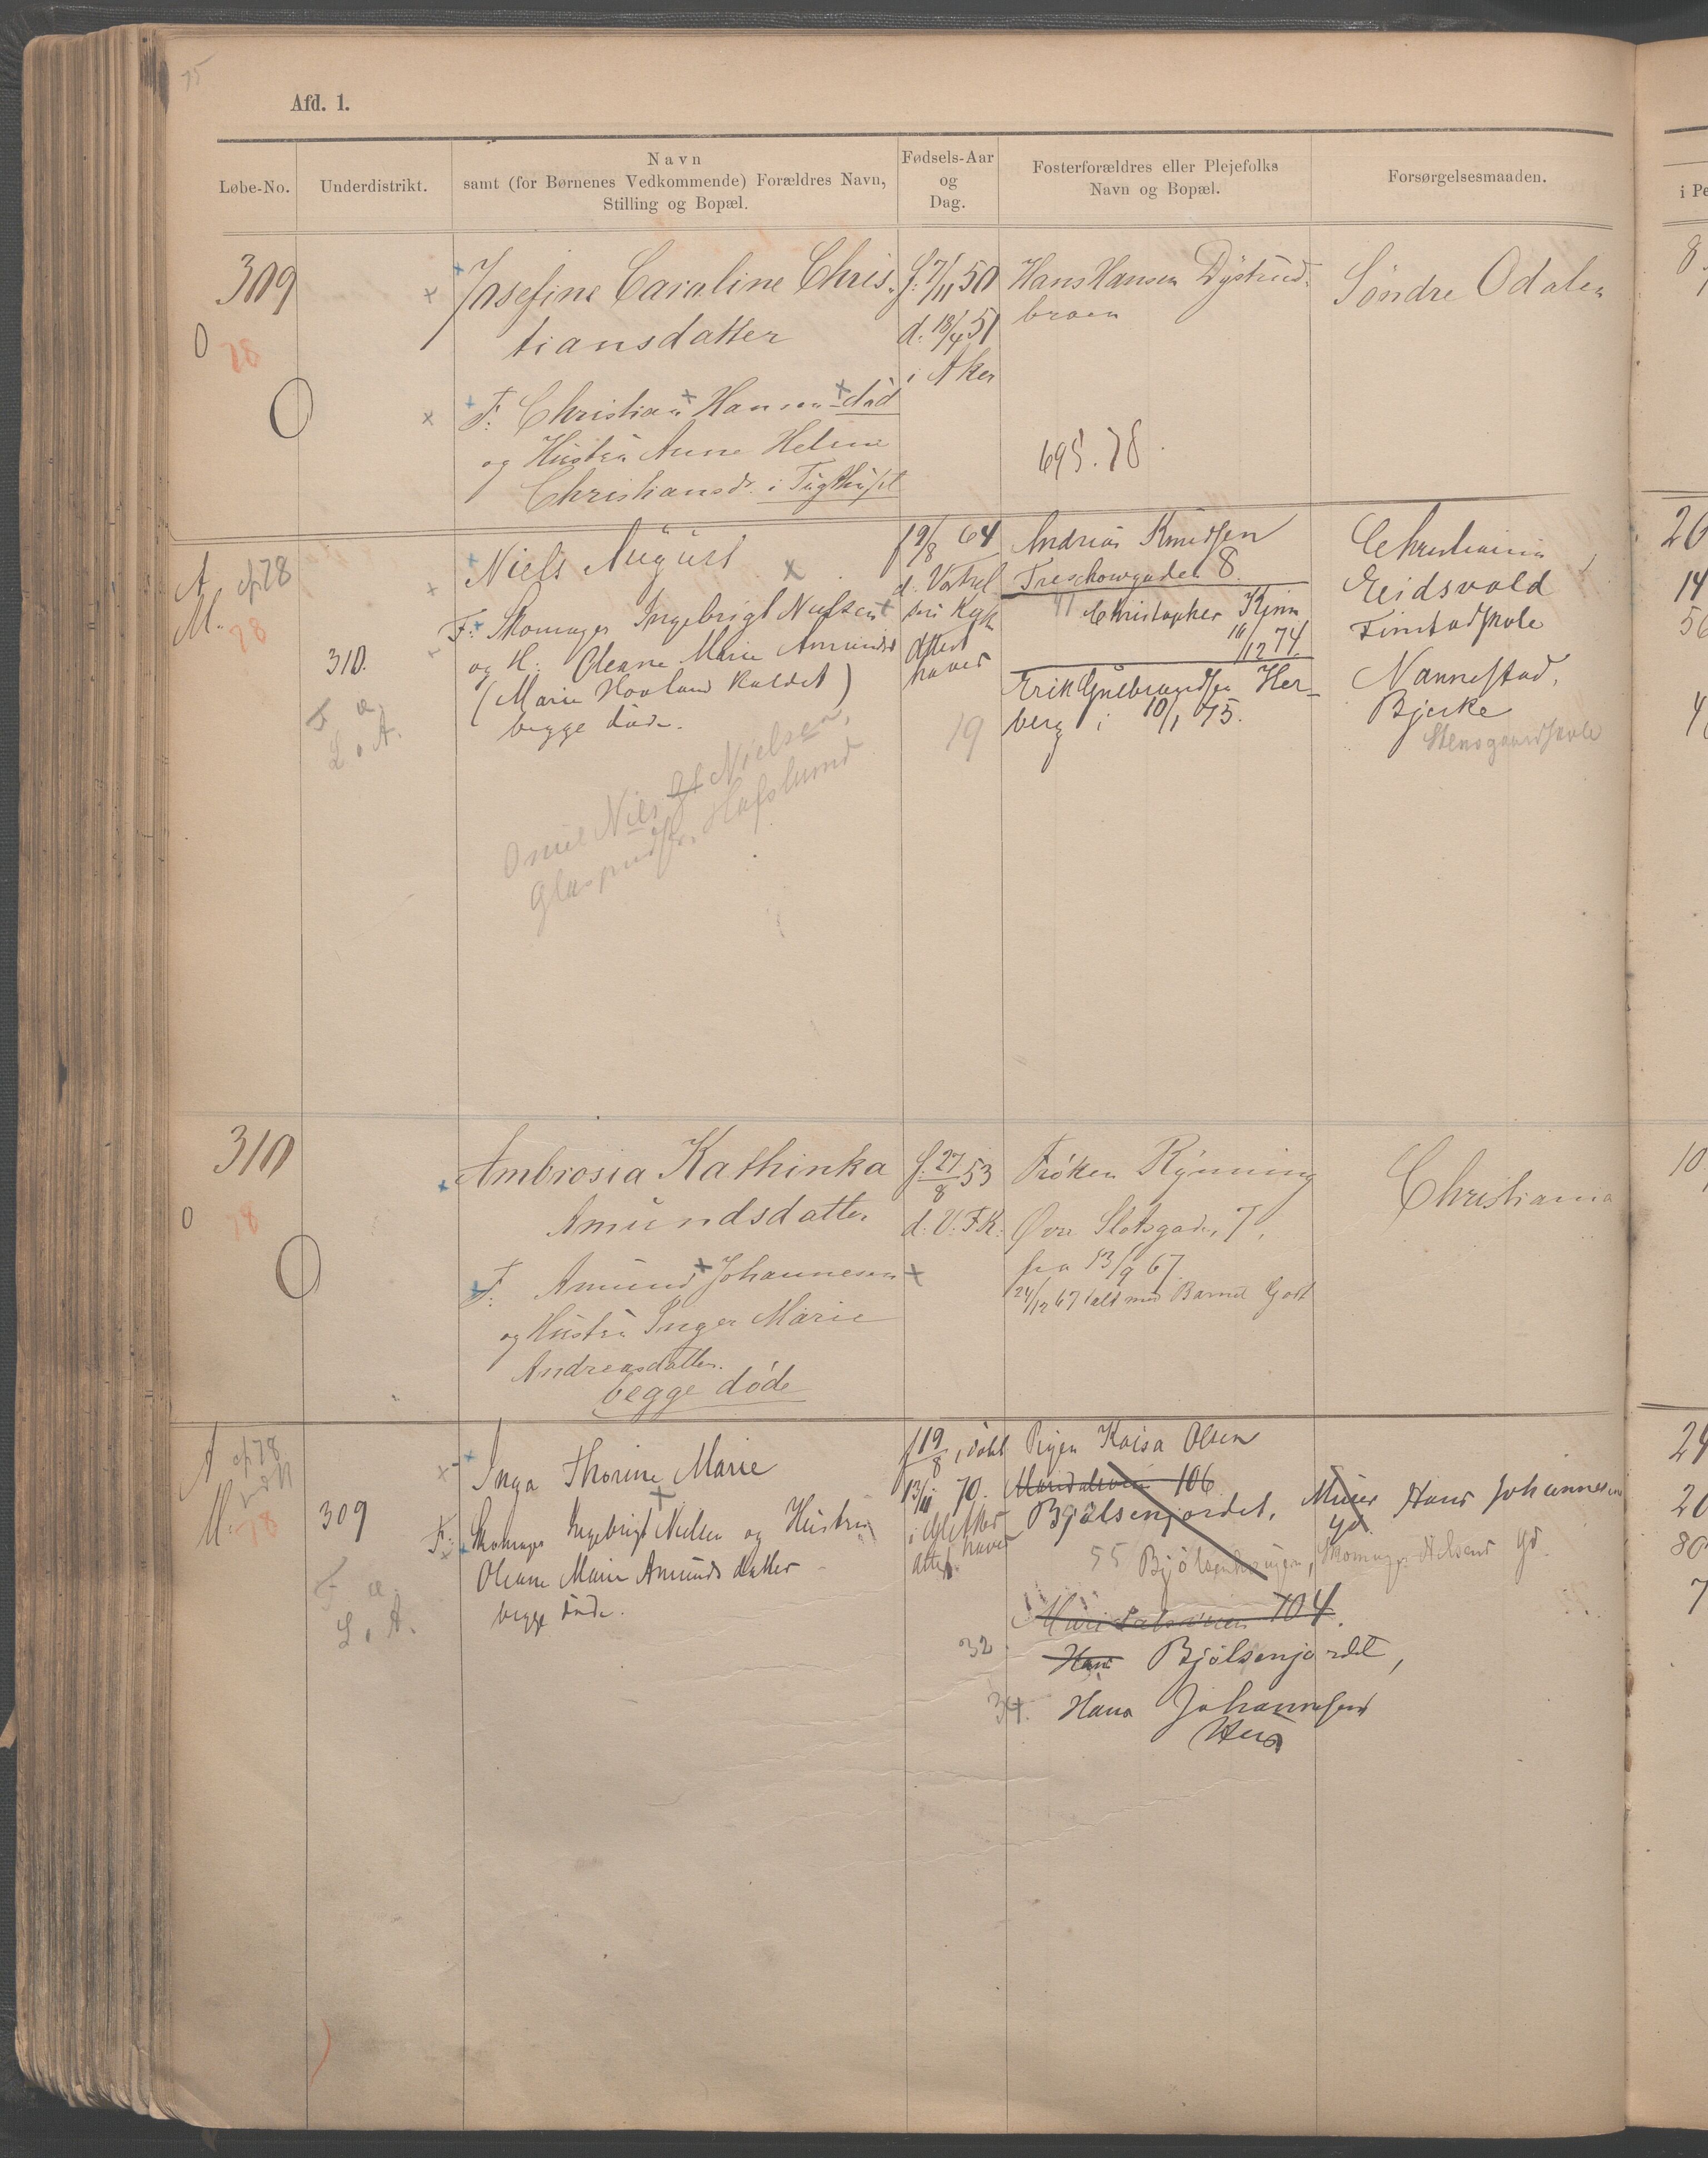 75
Afd. 1.
Løbe-No.
Underdistrikt.
Navn
samt (for Børnenes Vedkommende) Forældres Navn,
Stilling og Bopæl.
Fødsels-Aar
og
Dag.
Fosterforældres eller Plejefolks
Navn og Bopæl.
Forsørgelsesmaaden.
i Pe
309
0
78
Josefine Caroline Chris-
tiansdatter
F: Christian Hansen død
og Hustru Anne Helene
Christiansdr. i Tugthuset
f. 7/11 50
d. 18/4 51
i Aker
Hans Hansen Dystrud-
braen
695.78
Søndre Odalen
A. cf. 78
M. 78
310.
F. æ.
L. A.
Niels August
F: Skomager Ingebrigt Nielsen
og H. Oleane Marie Amunds
(Marie Hovland kaldet)
begge døde.
Nielsen
Hafslund
f 9/8 64
d. Vor Frel
sers Kirke
Attest
haves
19
Andreas Knudsen
Treschowgaden 8
Christopher Kinn
10/12 74
Erik Gulbrandsen Her-
berg i 10/1 75.
Christiania
Eidsvold
Finstadskole
Nannestad,
Bjerke
Stensgaardskole
310
0
78
Ambrosia Kathinka
Amundsdatter
F: Amund Johannesen
og Hustru Inger Marie
Andreasdatter.
begge døde
f. 27/8 53
d. V. F. K.
Frøken Rynning
Øvre Slotsgade, 7,
fra 13/9 67
24/12 67 talt med Barnet Godt
Christiania
A cf 78
M. 78
309
F. æ.
L. A.
Inga Thorine Marie
F: Skomager Ingebrigt Nielsen og Hustru
Oleane Marie Amundsdatter
begge døde.
f 19/8, døbt
13/11 70.
Attest haves
Pigen Kaisa Olsen
Maridalsveien 106
Bjølsenjordet, Murer Hans Johannesens
Gd.
55 Bjølsenbruggen, Skomager Nelsens Gd.
Maridalsveien 104.
32
Hans Bjølsenjordet,
34. Hans Johannesens
Hus